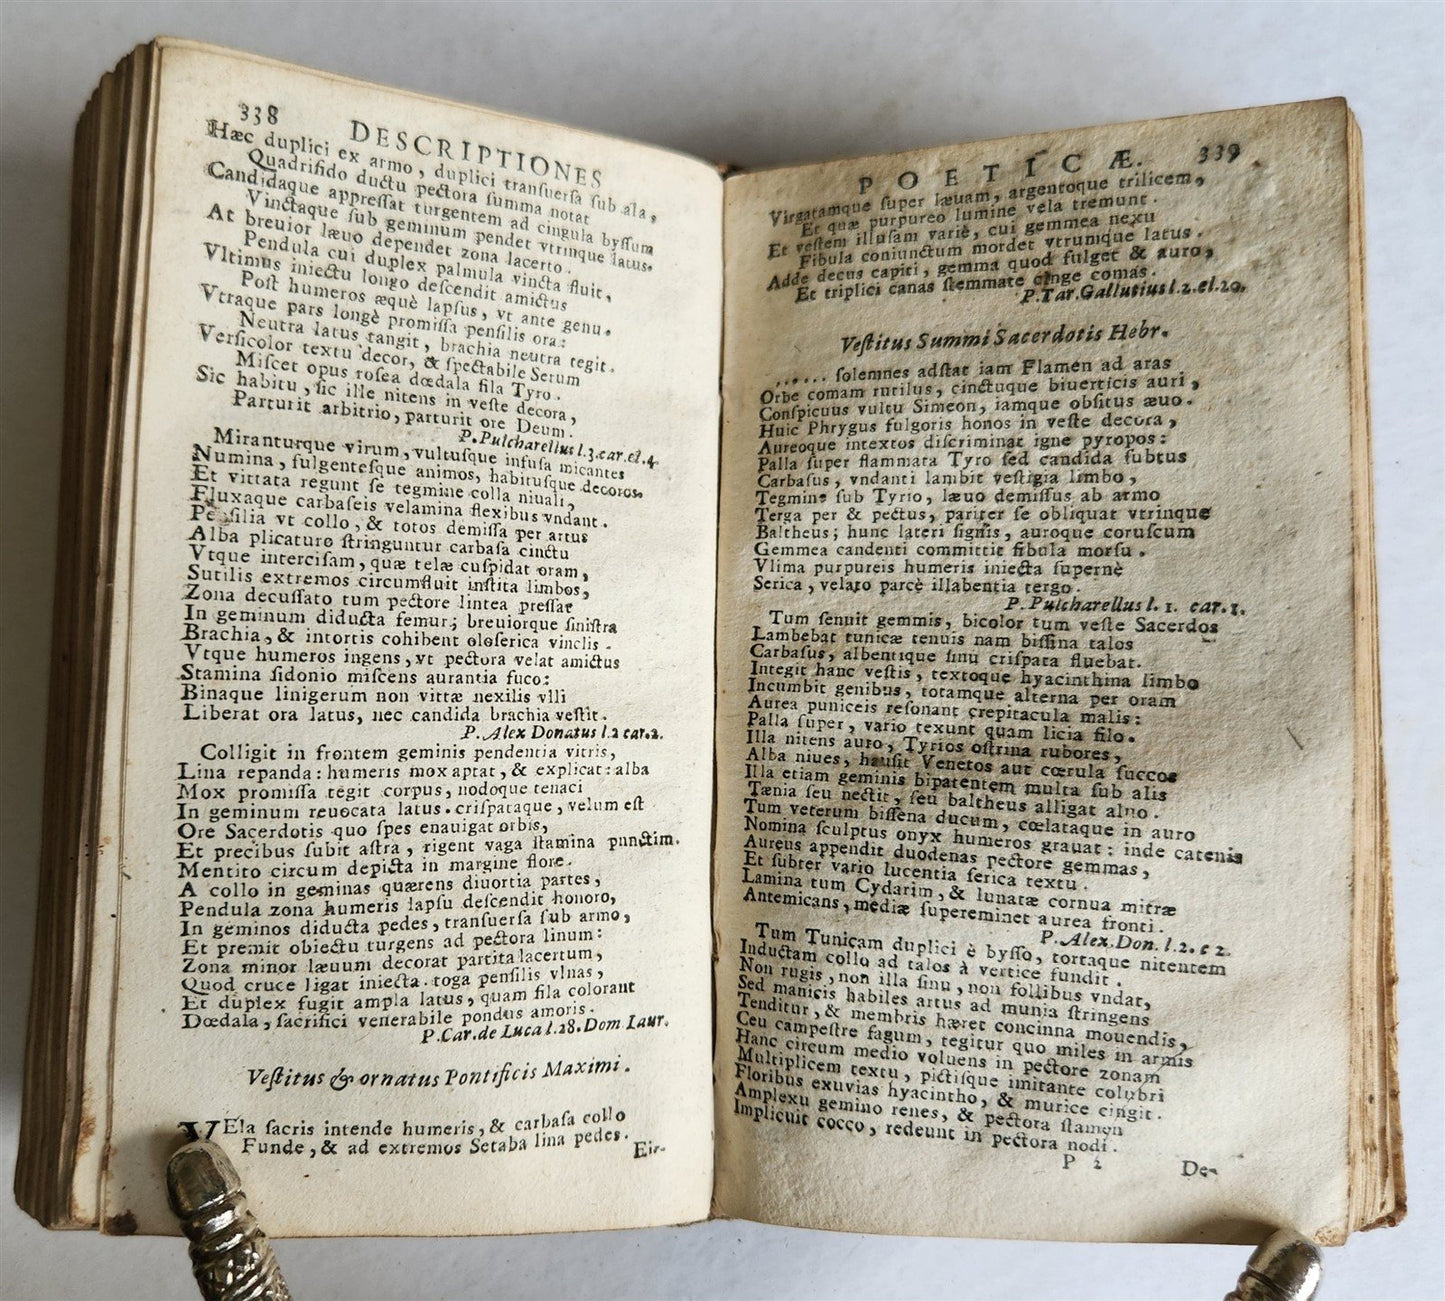 338 DESCRIPTIONES
Hæc duplici ex armo, duplici tranſuerſa ſub ala,
Quadrifido ductu pectora ſumma notat
Candidaque appreſſat turgentem ad cingula byſſum
Vinctaque ſub geminum pendet vtrinque latus.
At breuior læuo dependet zona lacerto.
Pendula cui duplex palmula vincta fluit,
Vltimus iniectu longo deſcendit amictus
Poſt humeros æquè lapſus, vt ante genu.
Vtraque pars longè promiſſa penſilis ora:
Neutra latus tangit, brachia neutra tegit.
Verſicolor textu decor, & ſpectabile Serum
Miſcet opus roſea dœdala fila Tyro.
Sic habitu, ſic ille nitens in veſte decora,
Parturit arbitrio, parturit ore Deum.
P. Pulcharellus l. 3. car. el. 4.
Miranturque virum, vultuſque infuſa micantes
Numina, fulgenteſque animos, habituſque decoros.
Et vittata regunt ſe tegmine colla niuali,
Fluxaque carbaſeis velamina flexibus vndant.
Penſilia vt collo, & totos demiſſa per artus
Alba plicaturo ſtringuntur carbaſa cinctu
Vtque interciſam, quæ telæ cuſpidat oram,
Sutilis extremos circumfluit inſtita limbos,
Zona decuſſato tum pectore lintea preſſat
In geminum diducta femur; breuiorque ſiniſtra
Brachia, & intortis cohibent oloſerica vinclis.
Vtque humeros ingens, vt pectora velat amictus
Stamina ſidonio miſcens aurantia fuco:
Binaque linigerum non vittæ nexilis vlli
Liberat ora latus, nec candida brachia veſtit.
P. Alex Donatus l. 2 car. 2.
Colligit in frontem geminis pendentia vitris,
Lina repanda: humeris mox aptat, & explicat: alba
Mox promiſſa tegit corpus, nodoque tenaci
In geminum reuocata latus. criſpataque, velum eſt
Ore Sacerdotis quo ſpes enauigat orbis,
Et precibus ſubit aſtra, rigent vaga ſtamina punctim.
Mentito circum depicta in margine flore.
A collo in geminas quærens diuortia partes,
Pendula zona humeris lapſu deſcendit honoro,
In geminos diducta pedes, tranſuerſa ſub armo,
Et premit obiectu turgens ad pectora linum:
Zona minor læuum decorat partita lacertum,
Quod cruce ligat iniecta. toga penſilis vlnas,
Et duplex fugit ampla latus, quam fila colorant
Dœdala, ſacrifici venerabile pondus amoris.
P. Car. de Luca l. 28. Dom Iaur.
Veſtitus & ornatus Pontificis Maximi.
VEla ſacris intende humeris, & carbaſa collo
Funde, & ad extremos Setaba lina pedes.
Eir-
POETICÆ. 339
Virgatamque ſuper læuam, argentoque trilicem,
Et quæ purpureo lumine vela tremunt.
Et veſtem illuſam variè, cui gemmea nexu
Fibula coniunctum mordet vtrumque latus.
Adde decus capiti, gemma quod fulget & auro,
Et triplici canas ſtemmate cinge comas.
P. Tar. Gallutius l. 2. el. 20.
Veſtitus Summi Sacerdotis Hebr.
...... ſolemnes adſtat iam Flamen ad aras
Orbe comam rutilus, cinctuque biuerticis auri,
Conſpicuus vultu Simeon, iamque obſitus æuo.
Huic Phrygus fulgoris honos in veſte decora,
Aureoque intextos diſcriminat igne pyropos:
Palla ſuper flammata Tyro ſed candida ſubtus
Carbaſus, vndanti lambit veſtigia limbo,
Tegmine ſub Tyrio, læuo demiſſus ab armo
Terga per & pectus, pariter ſe obliquat vtrinque
Baltheus; hunc lateri ſignis, auroque coruſcum
Gemmea candenti committit fibula morſu.
Vlima purpureis humeris iniecta ſupernè
Serica, velato parcè illabentia tergo.
P. Pulcharellus l. 1. car. 1.
Tum ſenuit gemmis, bicolor tum veſte Sacerdos
Lambebat tunicæ tenuis nam biſſina talos
Carbaſus, albentique ſinu criſpata fluebat.
Integit hanc veſtis, textoque hyacinthina limbo
Incumbit genibus, totamque alterna per oram
Aurea puniceis reſonant crepitacula malis:
Palla ſuper, vario texunt quam licia filo.
Illa nitens auro, Tyrios oſtrina rubores,
Alba niues, hauſit Venetos aut cœrula ſuccos
Illa etiam geminis bipatentem multa ſub alis
Tænia ſeu nectit, ſeu baltheus alligat aluo.
Tum veterum biſſena ducum, cœlataque in auro
Nomina ſculptus onyx humeros grauat: inde catenis
Aureus appendit duodenas pectore gemmas,
Et ſubter vario lucentia ſerica textu.
Lamina tum Cydarim, & lunatæ cornua mitræ
Antemicans, mediæ ſupereminet aurea fronti.
P. Alex. Don. l. 2. c 2.
Tum Tunicam duplici è byſſo, tortaque nitentem
Inductam collo ad talos à vertice fundit.
Non rugis, non illa ſinu, non follibus vndat,
Sed manicis habiles artus ad munia ſtringens
Tenditur, & membris hæret concinna mouendis,
Ceu campeſtre ſagum, tegitur quo miles in armis
Hanc circum medio voluens in pectore zonam
Multiplicem textu, pictiſque imitante colubri
Floribus exuvias hyacintho, & murice cingit.
Amplexu gemino renes, & pectora ſtamen
Implicuit cocco, redeunt in pectora nodi.
P 2 De-